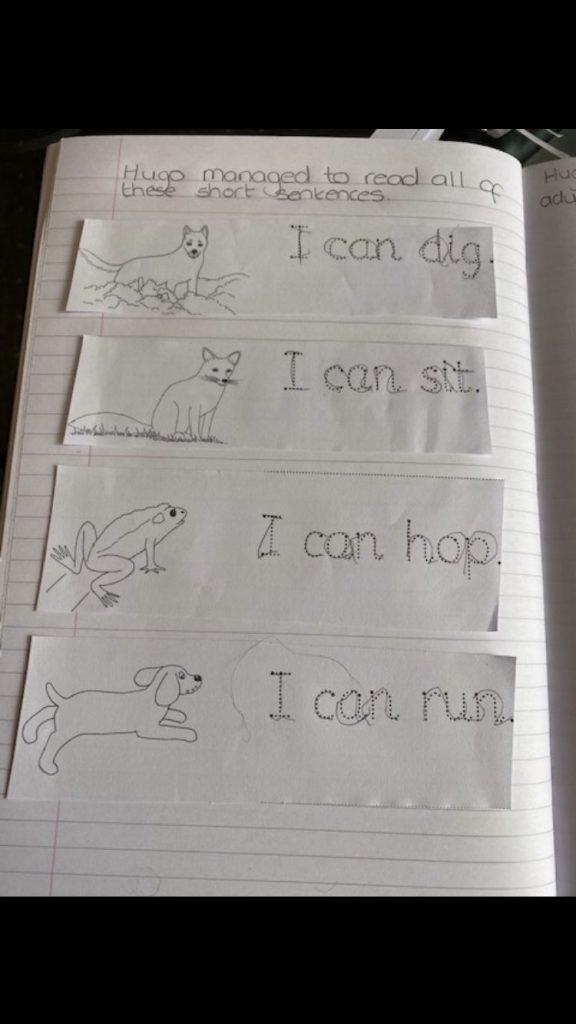 Hugo managed to read all of
these short sentences.
I can dig.
I can sit.
I can hop.
I can run.